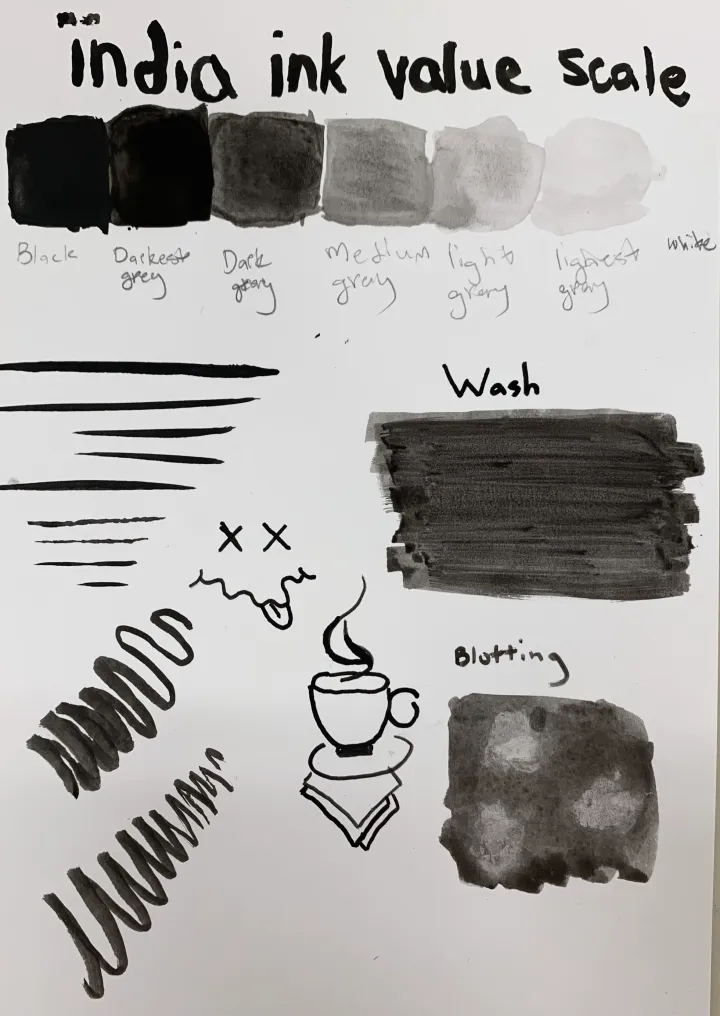 india ink value scale
Black Darkest grey Dark gray medium gray light gray lightest gray white
Wash
Blotting